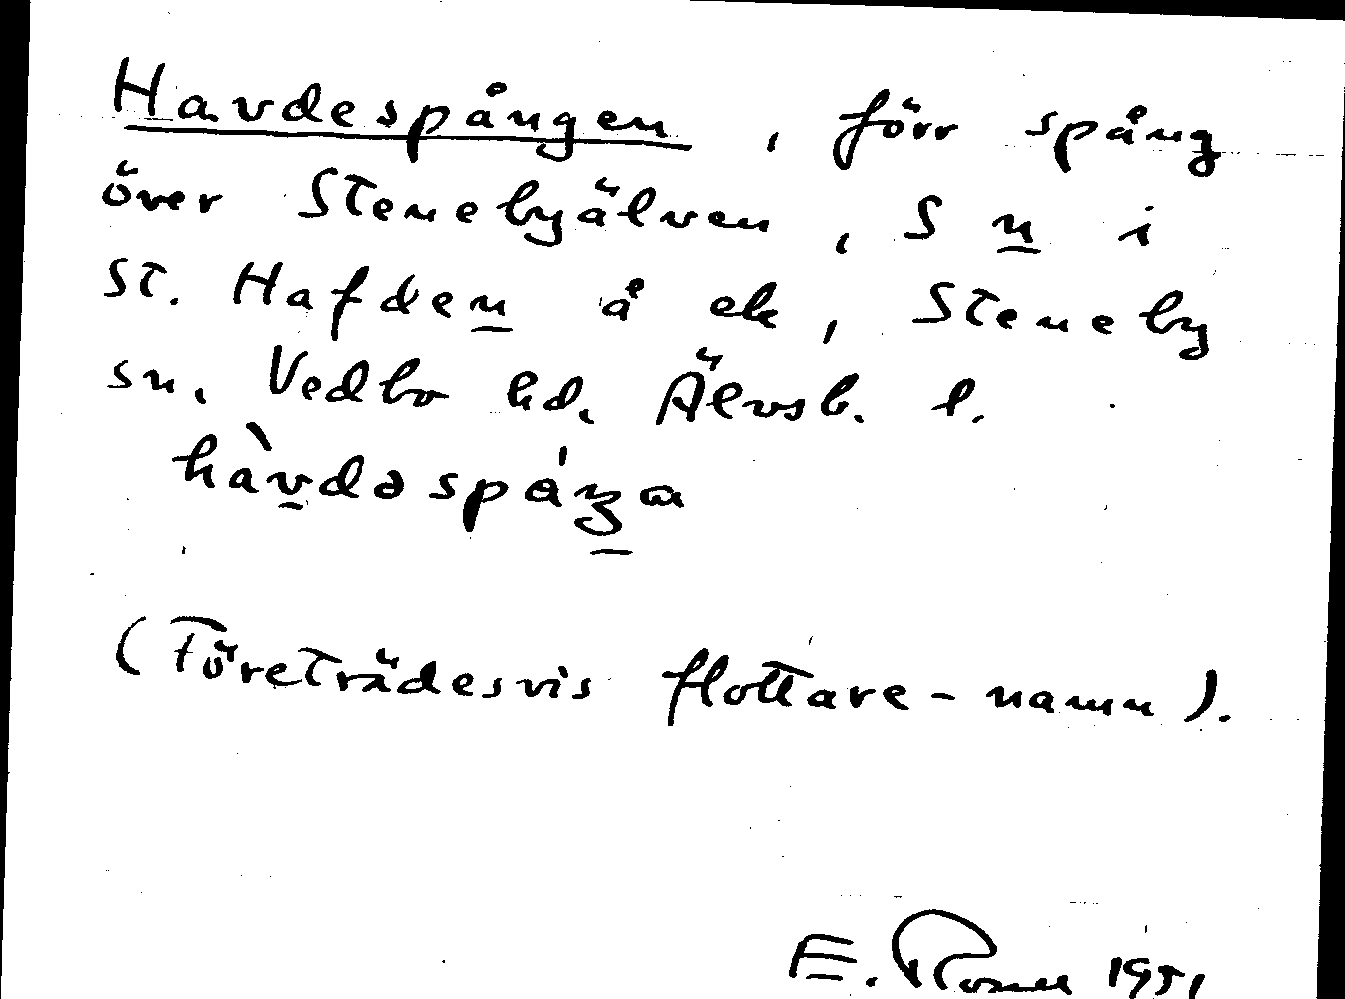 Havdespången, förr spång
över Stenebyälven, S n i
St. Hafden å ek, Steneby
sn. Vedbo hd. Älvsb. l.
(Företrädesvis flottare-namn).
E. 1951